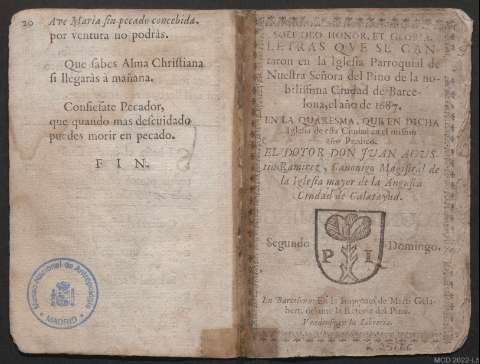 20 Ave Maria sin pecado concebida.
por ventura no podràs.
Que sabes Alma Christiana
si llegaràs à mañana.
Confiesate Pecador,
que quando mas descuidado
puedes morir en pecado.
FIN.
Museo Nacional de Antropología
MADRID
SOLI DEO HONOR, ET GLORIA.
LETRAS QUE SE CAN-
taron en la Iglesia Parroquial de
Nuestra Señora del Pino de la no-
bilissima Ciudad de Barce-
lona, el año de 1687.
EN LA QUARESMA, QUE EN DICHA
Iglesia de esta Ciudad en el mismo
año Predicó.
EL DOTOR DON JUAN AGUS-
tin Ramirez, Canonigo Magistral de
la Iglesia mayor de la Augusta
Ciudad de Calatayud.
Segundo Domingo.
P I
En Barcelona: En la Imprenta de Marti Gela-
bert, delante la Retoria del Pino.
Vendense en la Libreria.
MCD 2022-L5